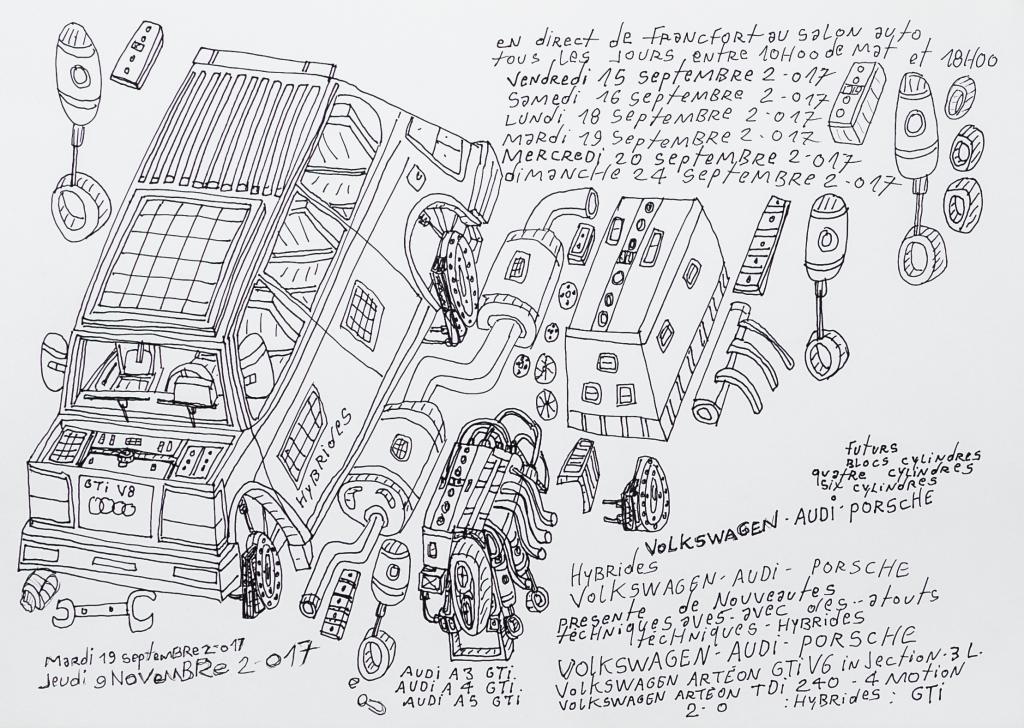 en direct de Francfort au salon auto
tous les jours entre 10H00 de mat et 18H00
Vendredi 15 septembre 2-017
Samedi 16 septembre 2-017
Lundi 18 septembre 2-017
Mardi 19 septembre 2-017
Mercredi 20 septembre 2-017
dimanche 24 septembre 2-017
HYBRIDES
GTi V8
futurs
blocs cylindres
quatre cylindres
six cylindres
VOLKSWAGEN-AUDi-PORSCHE
HYBRIDES
VOLKSWAGEN-AUDi-PORSCHE
presente de nouveautes
techniques aves-avec des-atouts
techniques-HYBRIDES
VOLKSWAGEN-AUDi-PORSCHE
VOLKSWAGEN ARTÉON GTi V6 injection.3.L.
VOLKSWAGEN ARTÉON TDi 240-4 MOTION
2-0 :HYBRIDES: GTi
Mardi 19 septembre 2-017
Jeudi 9 NOVEMBRE 2-017
AUDi A3 GTi.
AUDi A4 GTi.
AUDi A5 GTi